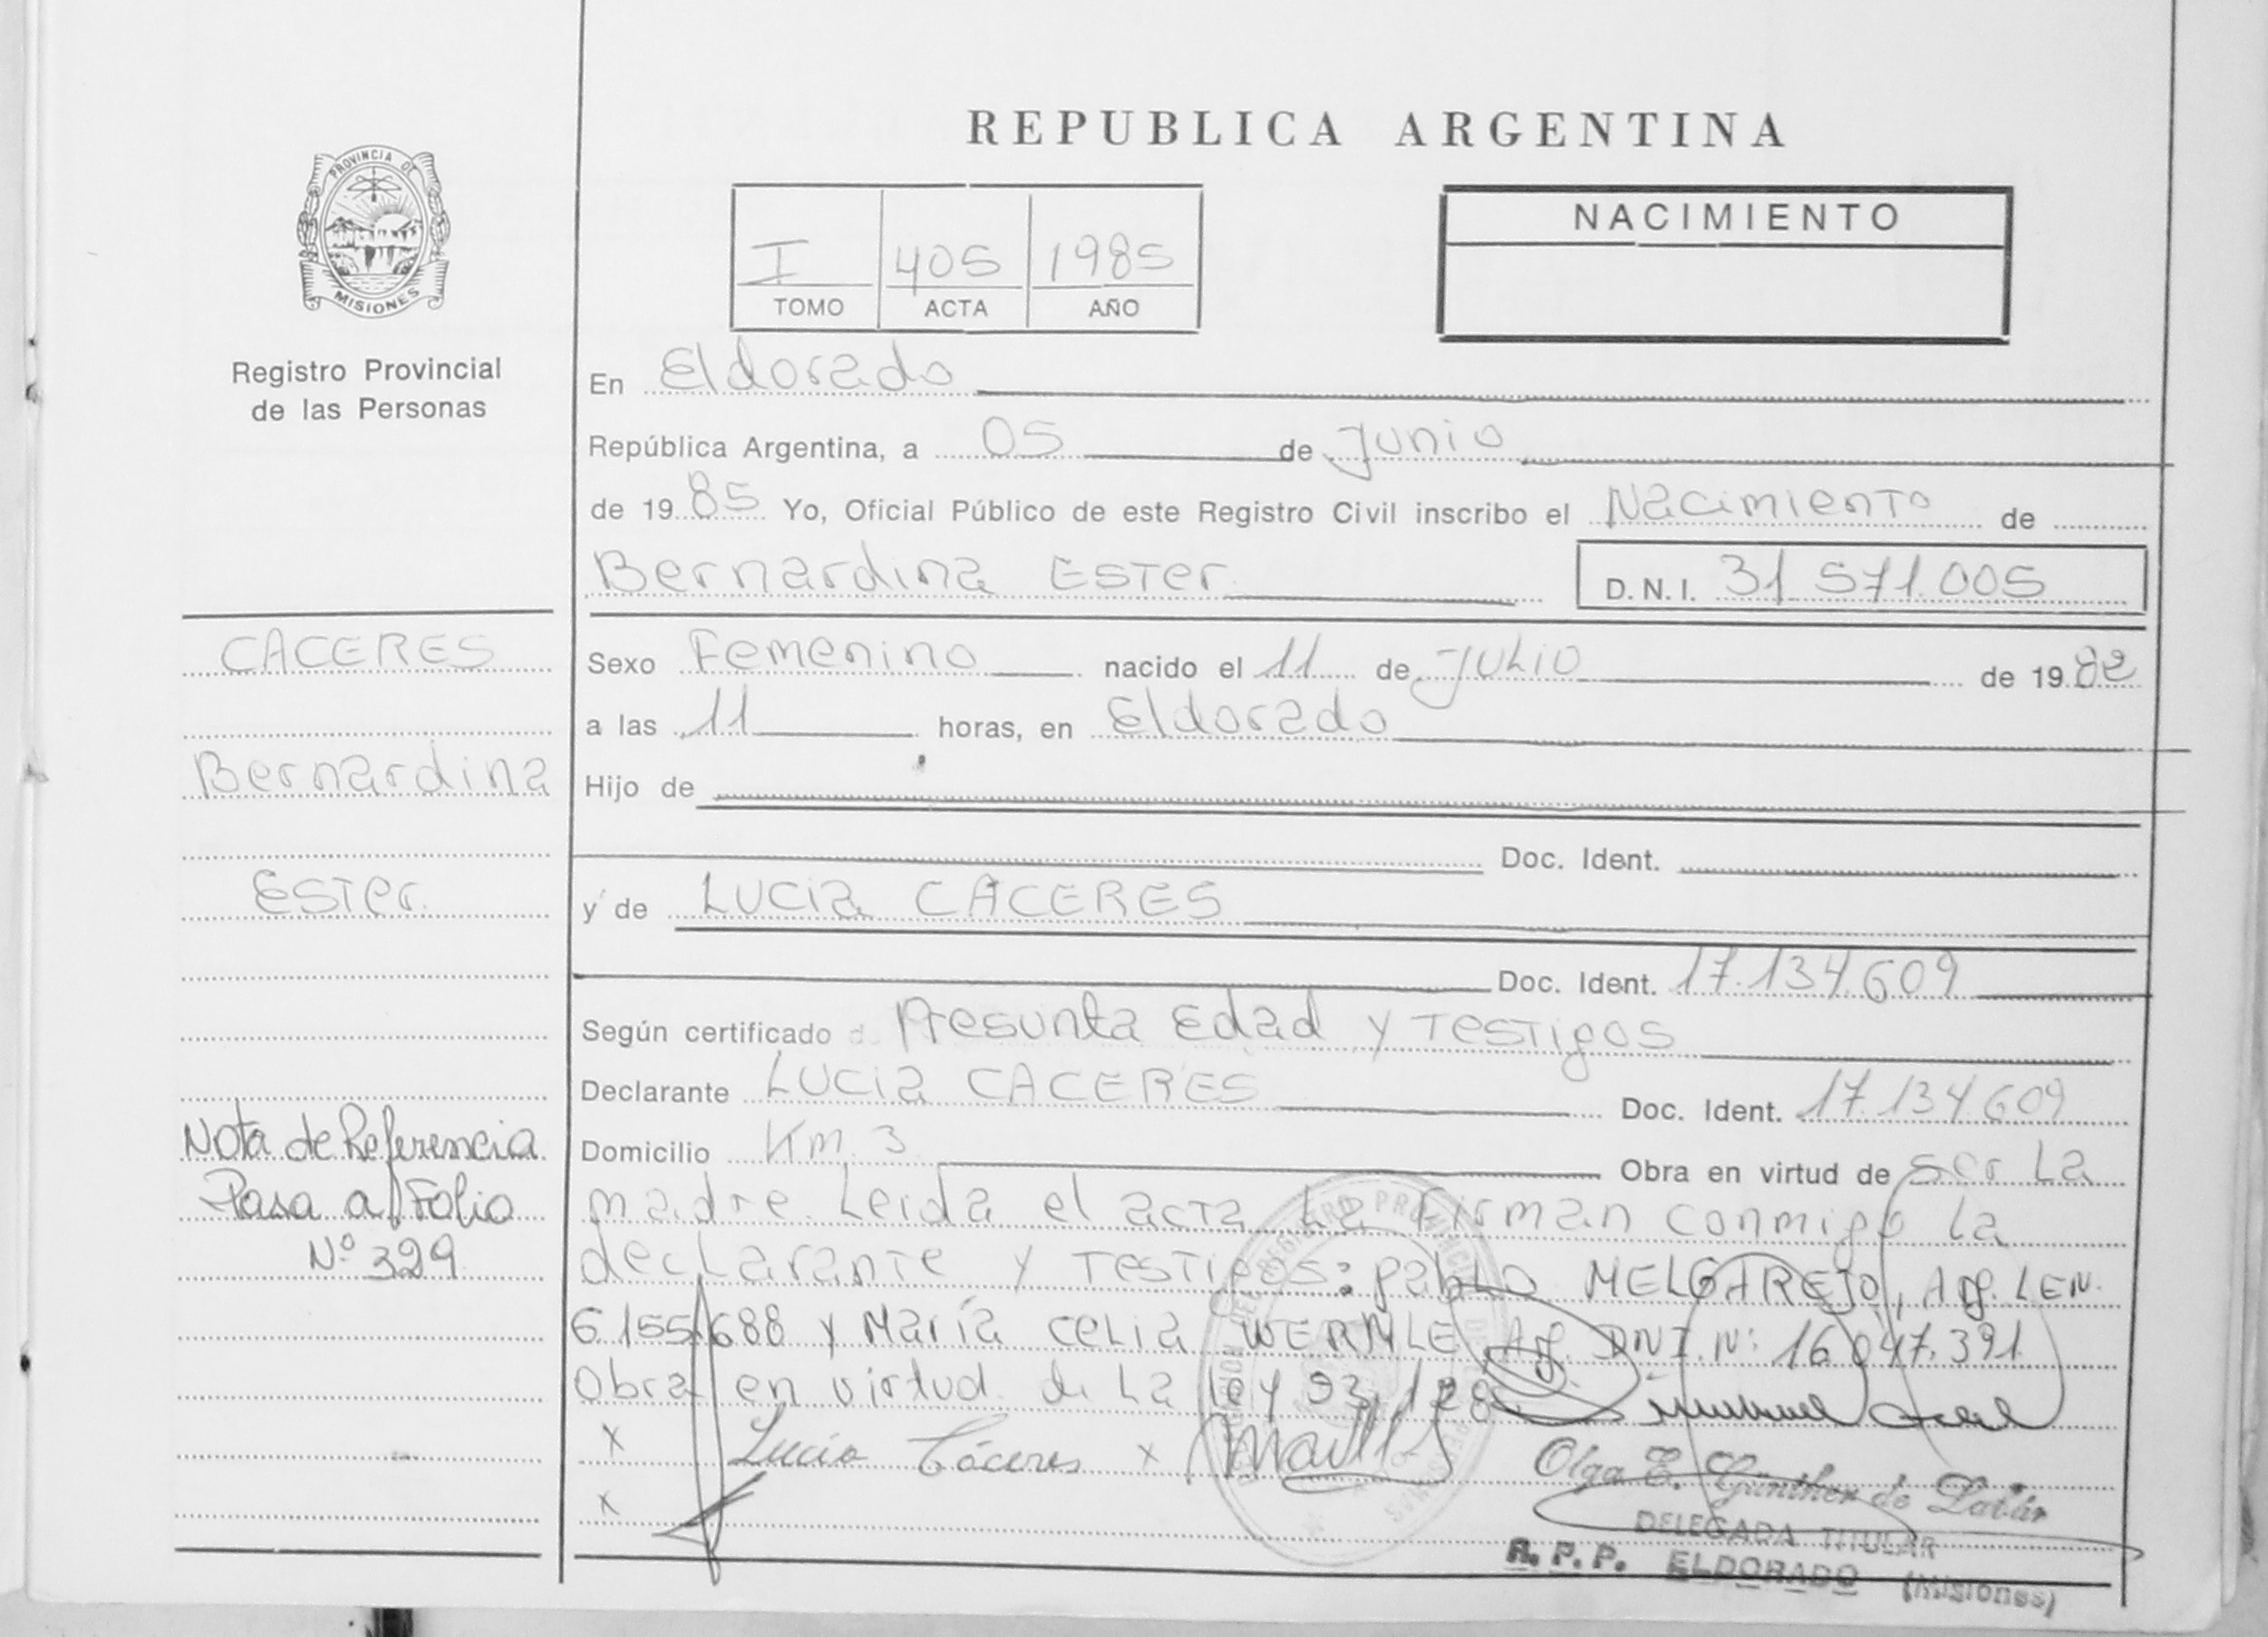 REPUBLICA ARGENTINA
PROVINCIA DE
MISIONES
Registro Provincial
de las Personas
I 405 1985
TOMO ACTA AÑO
NACIMIENTO
En Eldorado
República Argentina, a 05 de Junio
de 1985 Yo, Oficial Público de este Registro Civil inscribo el Nacimiento de
Bernardina Ester D.N.I. 31 571.005
CACERES
Bernardina
Ester
Sexo Femenino nacido el 11 de Julio de 1982
a las 11 horas, en Eldorado
Hijo de
Doc. Ident.
y de Lucia CACERES
Doc. Ident. 17.134.609
Según certificado d. Presunta Edad y Testigos
Declarante Lucia CACERES Doc. Ident. 17 134 609
Domicilio Km. 3 Obra en virtud de ser La
madre. Leida el acta La firman conmigo La
declarante y Testigos: Pablo MELGAREJO, Arg. L.E.N.
6.155.688 y María Celia WERNLE Arg. DNI. N: 16.047.391.
Obra en virtud de La Ley 23.128
Nota de Referencia
Pasa a Folio
Nº 329
x Lucia Cáceres x
x
Olga E. Günther de
DELEGADA TITULAR
R. P. P. ELDORADO (Misiones)